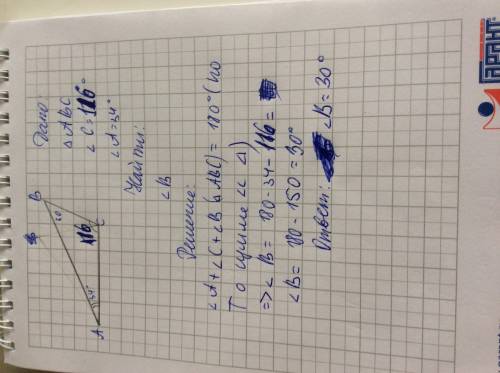 Дано:
△ABC
∠C=116°
∠A=34°
Найти:
∠B
Решение:
∠A+∠C+∠B(△ABC)=180°(по
Т о сумме ∠∠ △)
=>∠B=180-34-116=
∠B= 180-150=30°
Ответ: ∠B=30°
B
116
C
34°
A
ГАРАНТ